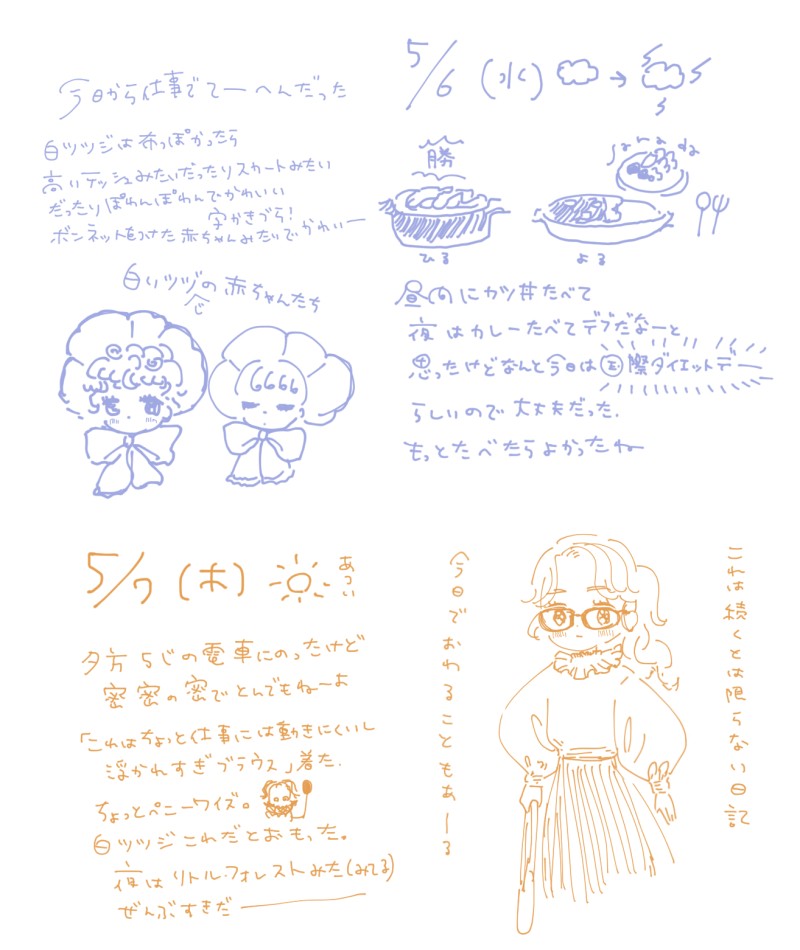 5/6 (水)
今日から仕事でてーへんだった
白ツツジは布っぽかったら
高いテッシュみたいだったりスカートみたい
だったりぽわんぽわんでかわいい
字かきづら!
ボンネットをつけた赤ちゃんみたいでかわいー
白いツツジの赤ちゃんたち
勝
sarada
ひる
よる
昼めにカツ丼たべて
夜はカレーたべてデブだなーと
思ったけどなんと今日は国際ダイエットデー
らしいので大丈夫だった.
もっとたべたらよかったね
5/7 (木)
あつい
夕方5じの電車にのったけど
密密の密でとんでもねーよ
「これはちょっと仕事には動きにくいし
浮かれすぎブラウス」着た.
ちょっとペニーワイズ。
白ツツジこれだとおもった。
夜はリトル・フォレストみた(みてる)
ぜんぶすきだ
これは続くとは限らない日記
今日でおわることもあーる